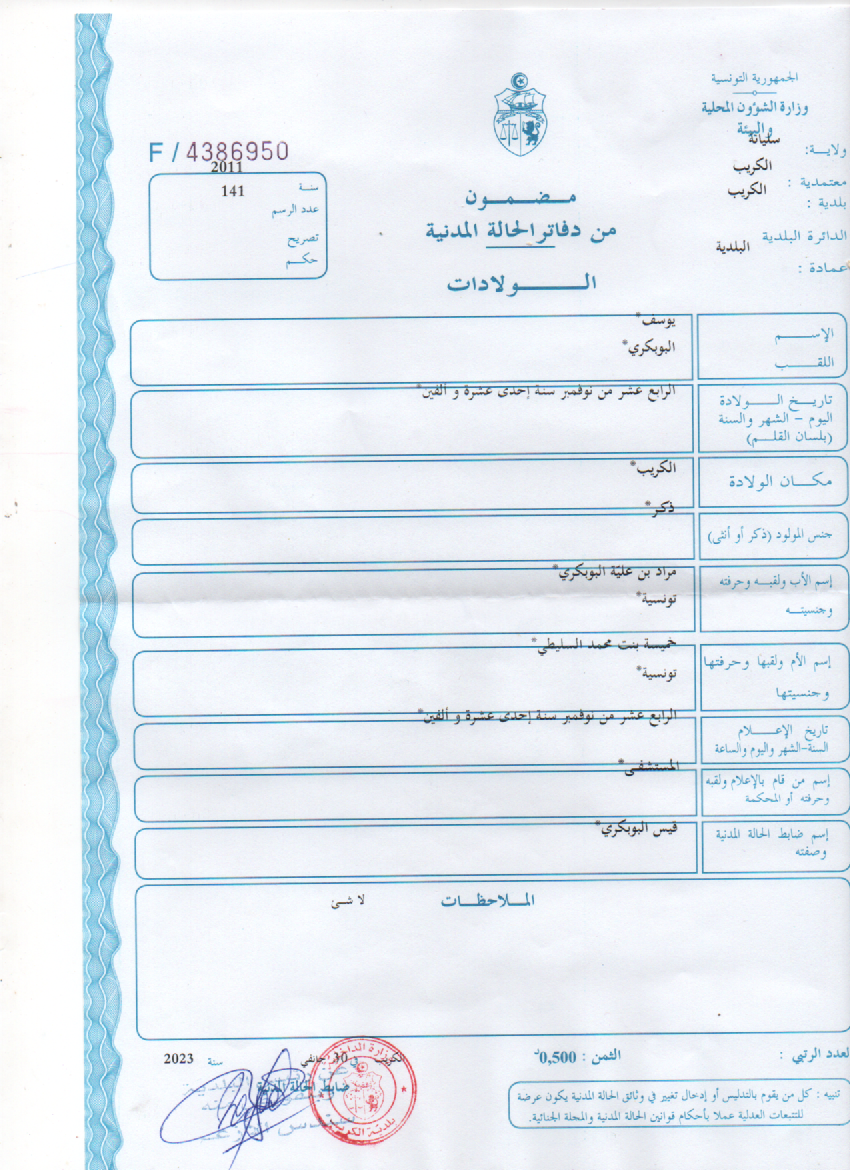 الجمهورية التونسية
وزارة الشؤون المحلية
والبيئة
ولايـــة: سليانة
معتمدية : الكريب
بلدية : الكريب
الدائرة البلدية البلدية
عمادة :
F / 4386950
سنة 2011
عدد الرسم 141
تصريح
حكـــم
مـــضـــمـــون
من دفاتر الحالة المدنية
الـــــــولادات
الإســـــــم يوسف*
اللقــــــب البوبكري*
تاريـــخ الـــــولادة الرابع عشر من نوفمبر سنة إحدى عشرة و ألفين*
اليوم – الشهر والسنة
(بلسان القلـــم)
مكـــان الولادة الكريب*
جنس المولود (ذكر أو أنثى) ذكر*
إسم الأب ولقبـــه وحرفته مراد بن عليّة البوبكري*
وجنسيتـــه تونسية*
إسم الأم ولقبها وحرفتها خميسة بنت محمد السليطي*
وجنسيتها تونسية*
تاريخ الإعـــــلام الرابع عشر من نوفمبر سنة إحدى عشرة و ألفين*
السنة-الشهر واليوم والساعة
إسم من قام بالإعلام ولقبه المستشفى*
وحرفته أو المحكمة
إسم ضابط الحالة المدنية قيس البوبكري*
وصفته
المـــلاحظـــات
لا شئ
لعدد الرتبي :
الثمن : 0,500د
الكريب في 10 جانفي سنة 2023
ضابط الحالة المدنية
وزارة الداخلية
بلدية الكريب
تنبيه : كل من يقوم بالتدليس أو إدخال تغيير في وثائق الحالة المدنية يكون عرضة
للتتبعات العدلية عملا بأحكام قوانين الحالة المدنية والمجلة الجنائية.